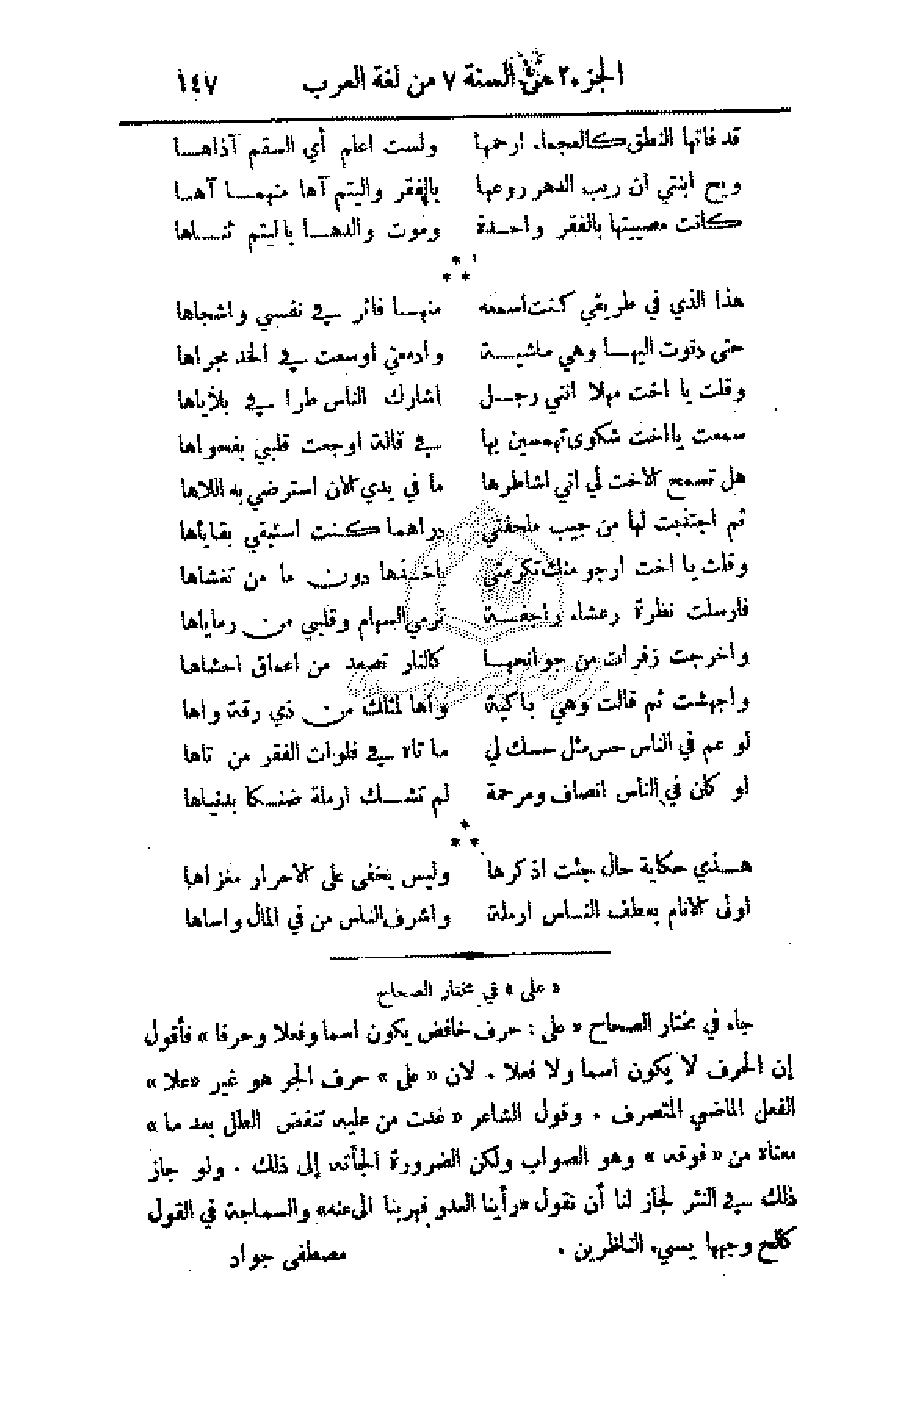 الجزء ٢ من السنة ٧ من لغة العرب ١٤٧
قد فاتها النطق كالعجماء ارحمها ولست اعلم أي السقم آذاها
ويح ابنتي ان ريب الدهر روعها بالفقر واليتم آها منهما آها
كانت مصيبتها بالفقر واحدة وموت والدها باليتم ثناها
***
هذا الذي في طريقي كنت اسمعه منها فاثر في نفسي واشجاها
حتى دنوت اليها وهي ماشية وادمعي اوسعت في الخد مجراها
وقلت يا اخت مهلا انني رجل اشارك الناس طرا في بلاياها
سمعت يا اخت شكوى تهمسين بها في قالة اوجعت قلبي بفحواها
هل تسمح الاخت لي اني اشاطرها ما في يدي الآن استرضي به اللاها
ثم اجتذبت لها من جيب ملحفتي دراهما كنت استبقي بقاياها
وقلت يا اخت ارجو منك تكرمتي باخذها دون ما من تغشاها
فارسلت نظرة رعشاء واجفة ترمي السهام وقلبي من رماياها
واخرجت زفرات من جوانحها كالنار تصعد من اعماق احشاها
واجهشت ثم قالت وهي باكية واها لمثلك من ذي رقة واها
لو عم في الناس حس مثل حسك لي ما تاه في فلوات الفقر من تاها
لو كان في الناس انصاف ومرحمة لم تشك ارملة ضنكا بدنياها
***
هذي حكاية حال جئت اذكرها وليس يخفى على الاحرار مغزاها
اولى الانام بعطف الناس ارملة واشرف الناس من في المال واساها
« على » في مختار الصحاح
جاء في مختار الصحاح « على : حرف خافض يكون اسما وفعلا وحرفا » فأقول
إن الحرف لا يكون اسما ولا فعلا . لان « على » حرف الجر هو غير «علا»
الفعل الماضي المتصرف . وقول الشاعر « غدت من عليه تنفض الطل بعد ما »
معناه من « فوقه » وهو الصواب ولكن الضرورة الجأته إلى ذلك . ولو جاز
ذلك في النثر لجاز لنا أن نقول «رأينا العدو فهربنا الى عنه» والسماجة في القول
كالح وجهها يسيء الناظرين . مصطفى جواد